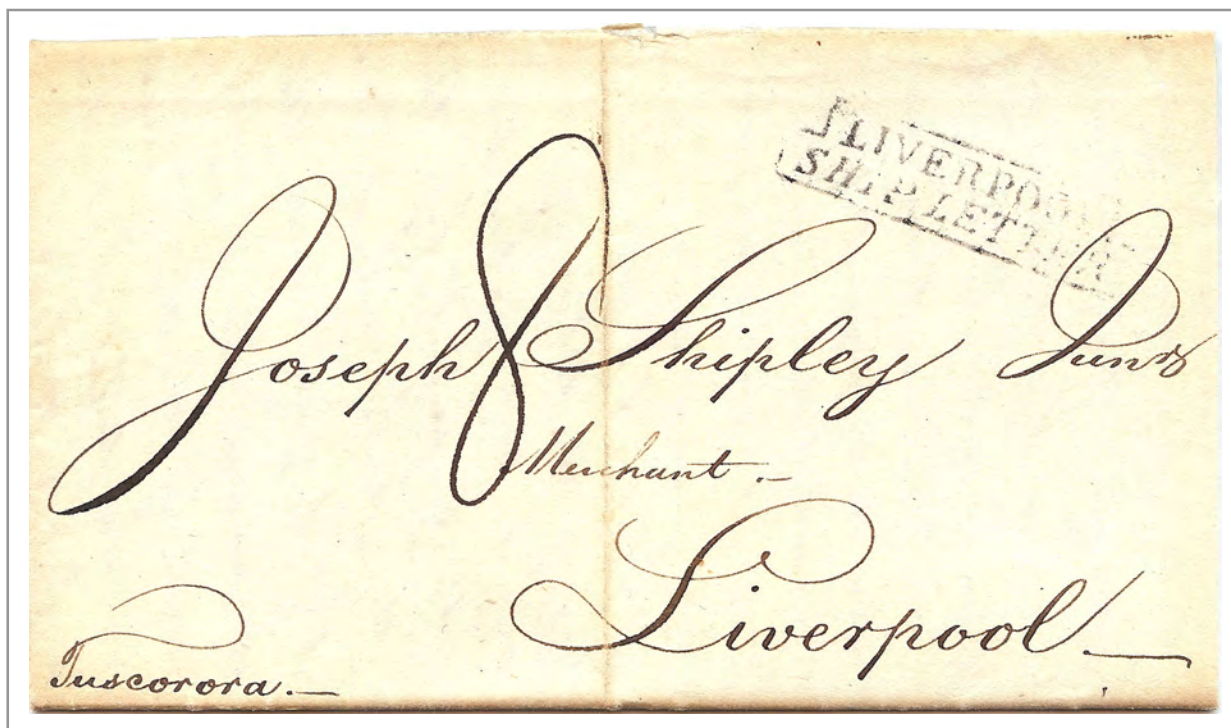 LIVERPOOL
SHIP LETTER
8
Joseph Shipley Junr
Merchant.-
Liverpool.-
Tuscorora.-